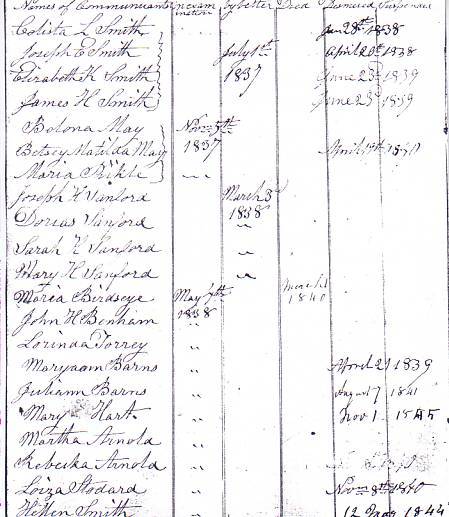 Names of Communicants on exam ination by letter Died Dismissed Suspended
Colista L Smith Jan 28th 1838
Joseph E Smith July 1st April 29th 1838
Elizabeth K Smith 1837 June 23d 1839
James H Smith June 23d 1839
Bolona May Nov 5th
Betsey Matilda May 1837 April
Maria
Joseph H Sanford March 3d
Dorias Sanford 1838
Sarah Sanford "
Mary H Sanford "
Maria Birdseye May 7th 1840
John H Benham 1838
Lorinda Torrey "
Maryann Barns " April 21 1839
Juliann Barns " August 7 1841
Mary Hart " Nov 1
Martha Arnold "
Rebecka Arnold "
Loiza Stodard " Nov 8th 1840
Hellen Smith " 12 1844